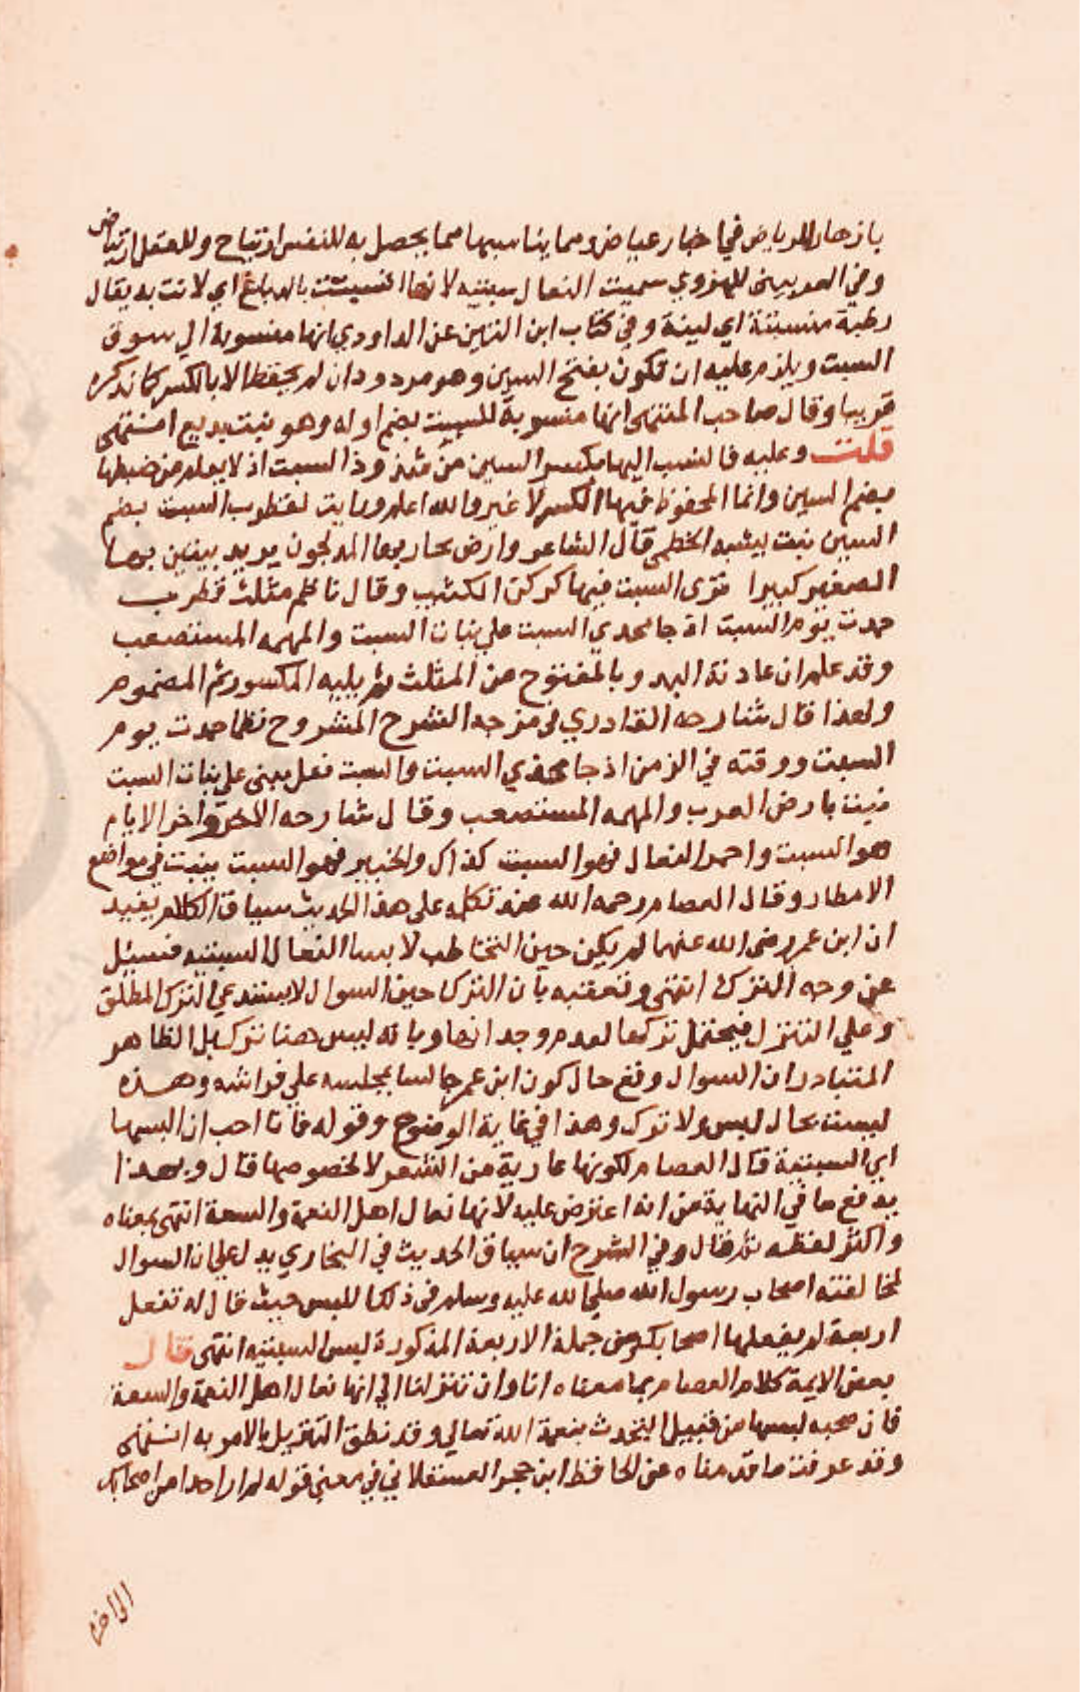 بازهار الرياض في اخبار عياض ومما يناسبها مما يحصل به للنفس ارتياح وللعقل ارتياض
وفي الغريبين للهروي سميت النعال سبتيه لانها انسبتت بالدباغ اي لانت به يقال
رطبة منسبتة اي لينة وفي كتاب ابن التين عن الداودي انها منسوبة الي سوق
السبت ويلزم عليه ان تكون بفتح السين وهو مردود ان لم يحفظ الا بالكسر كما ذكر
قريبا وقال صاحب المنتهى انها منسوبة للسبت بضم اوله وهو نبت يدبغ انتهى
قلت وعليه فالنسب اليها بكسر السين من شذوذ السبت اذ لا يعلم من ضبطها
بضم السين وانما المحفوظ فيها الكسر لا غير والله اعلم ورايت لقطرب السبت بضم
السين نبت يشبه الخطمى قال الشاعر وارض يحار بها المدلجون يريد بينين بها
الصغير كبيرا ترى السبت فيها كركن الكثيب وقال ناظم مثلث قطرب
حمدت يوم السبت اذ جا محذي السبت علي نبات السبت والمهمه المستصعب
وقد علم ان عادته البدء بالمفتوح من المثلث ثم يليه المكسور ثم المضموم
ولهذا قال شارحه القادري في مزجه الشرح المشروح نظما حمدت يوم
السبت ووقته في الزمن اذ جا محذي السبت والسبت نعل يبنى علي نبات السبت
نبت بارض العرب والمهمه المستصعب وقال شارحه الاخر واخر الايام
هو السبت واحمر النعال فهو السبت كذاك والخبير فهو السبت ينبت في مواضع
الامطار وقال العصام رحمه الله عند تكلمه على هذ الحديث سياق الكلام يفيد
ان ابن عمر رضى الله عنهما لم يكن حين التخاطب لابسا النعال السبتيه فسيئل
عن وجه الترك انتهى وتعقبه بان الترك حين السوال لا يستدعي الترك المطلق
وعلي التنزل فيحتمل تركها لعدم وجدانها وبانه ليس هنا ترك بل الظاهر
المتبادر ان السوال وقع حال كون ابن عمر جالسا بمجلسه علي فراشه وهذه
ليست بحال لبس ولا ترك وهذا في غاية الوضوح وقوله فانا احب ان البسها
اي السبتية قال العصام لكونها عارية من الشعر لا لخصوصها قال وبهذا
يدفع ما في النهاية من انه اعترض عليه لانها نعال اهل النعمة والسعة انتهى بمعناه
واكثر لفظه ثم قال وفي الشرح ان سياق الحديث في البخاري يدل علي ان السوال
لمخالفته اصحاب رسول الله صلى الله عليه وسلم في ذلك اللبس حيث قال له تفعل
اربعة لم يفعلها اصحابك ومن جملة الاربعة المذكورة لبس السبتيه انتهى قال
بعض الايمة كلام العصام بما معناه انا وان تنزلنا الي انها نعال اهل النعمة والسعة
فان محبه لبسها من قبيل التحدث بنعمة الله تعالي وقد نطق التنزيل بالامر به انتهى
وقد عرفت ما قدمناه عن الحافظ ابن حجر العسقلاني في معنى قوله لم ار احدا من اصحابك